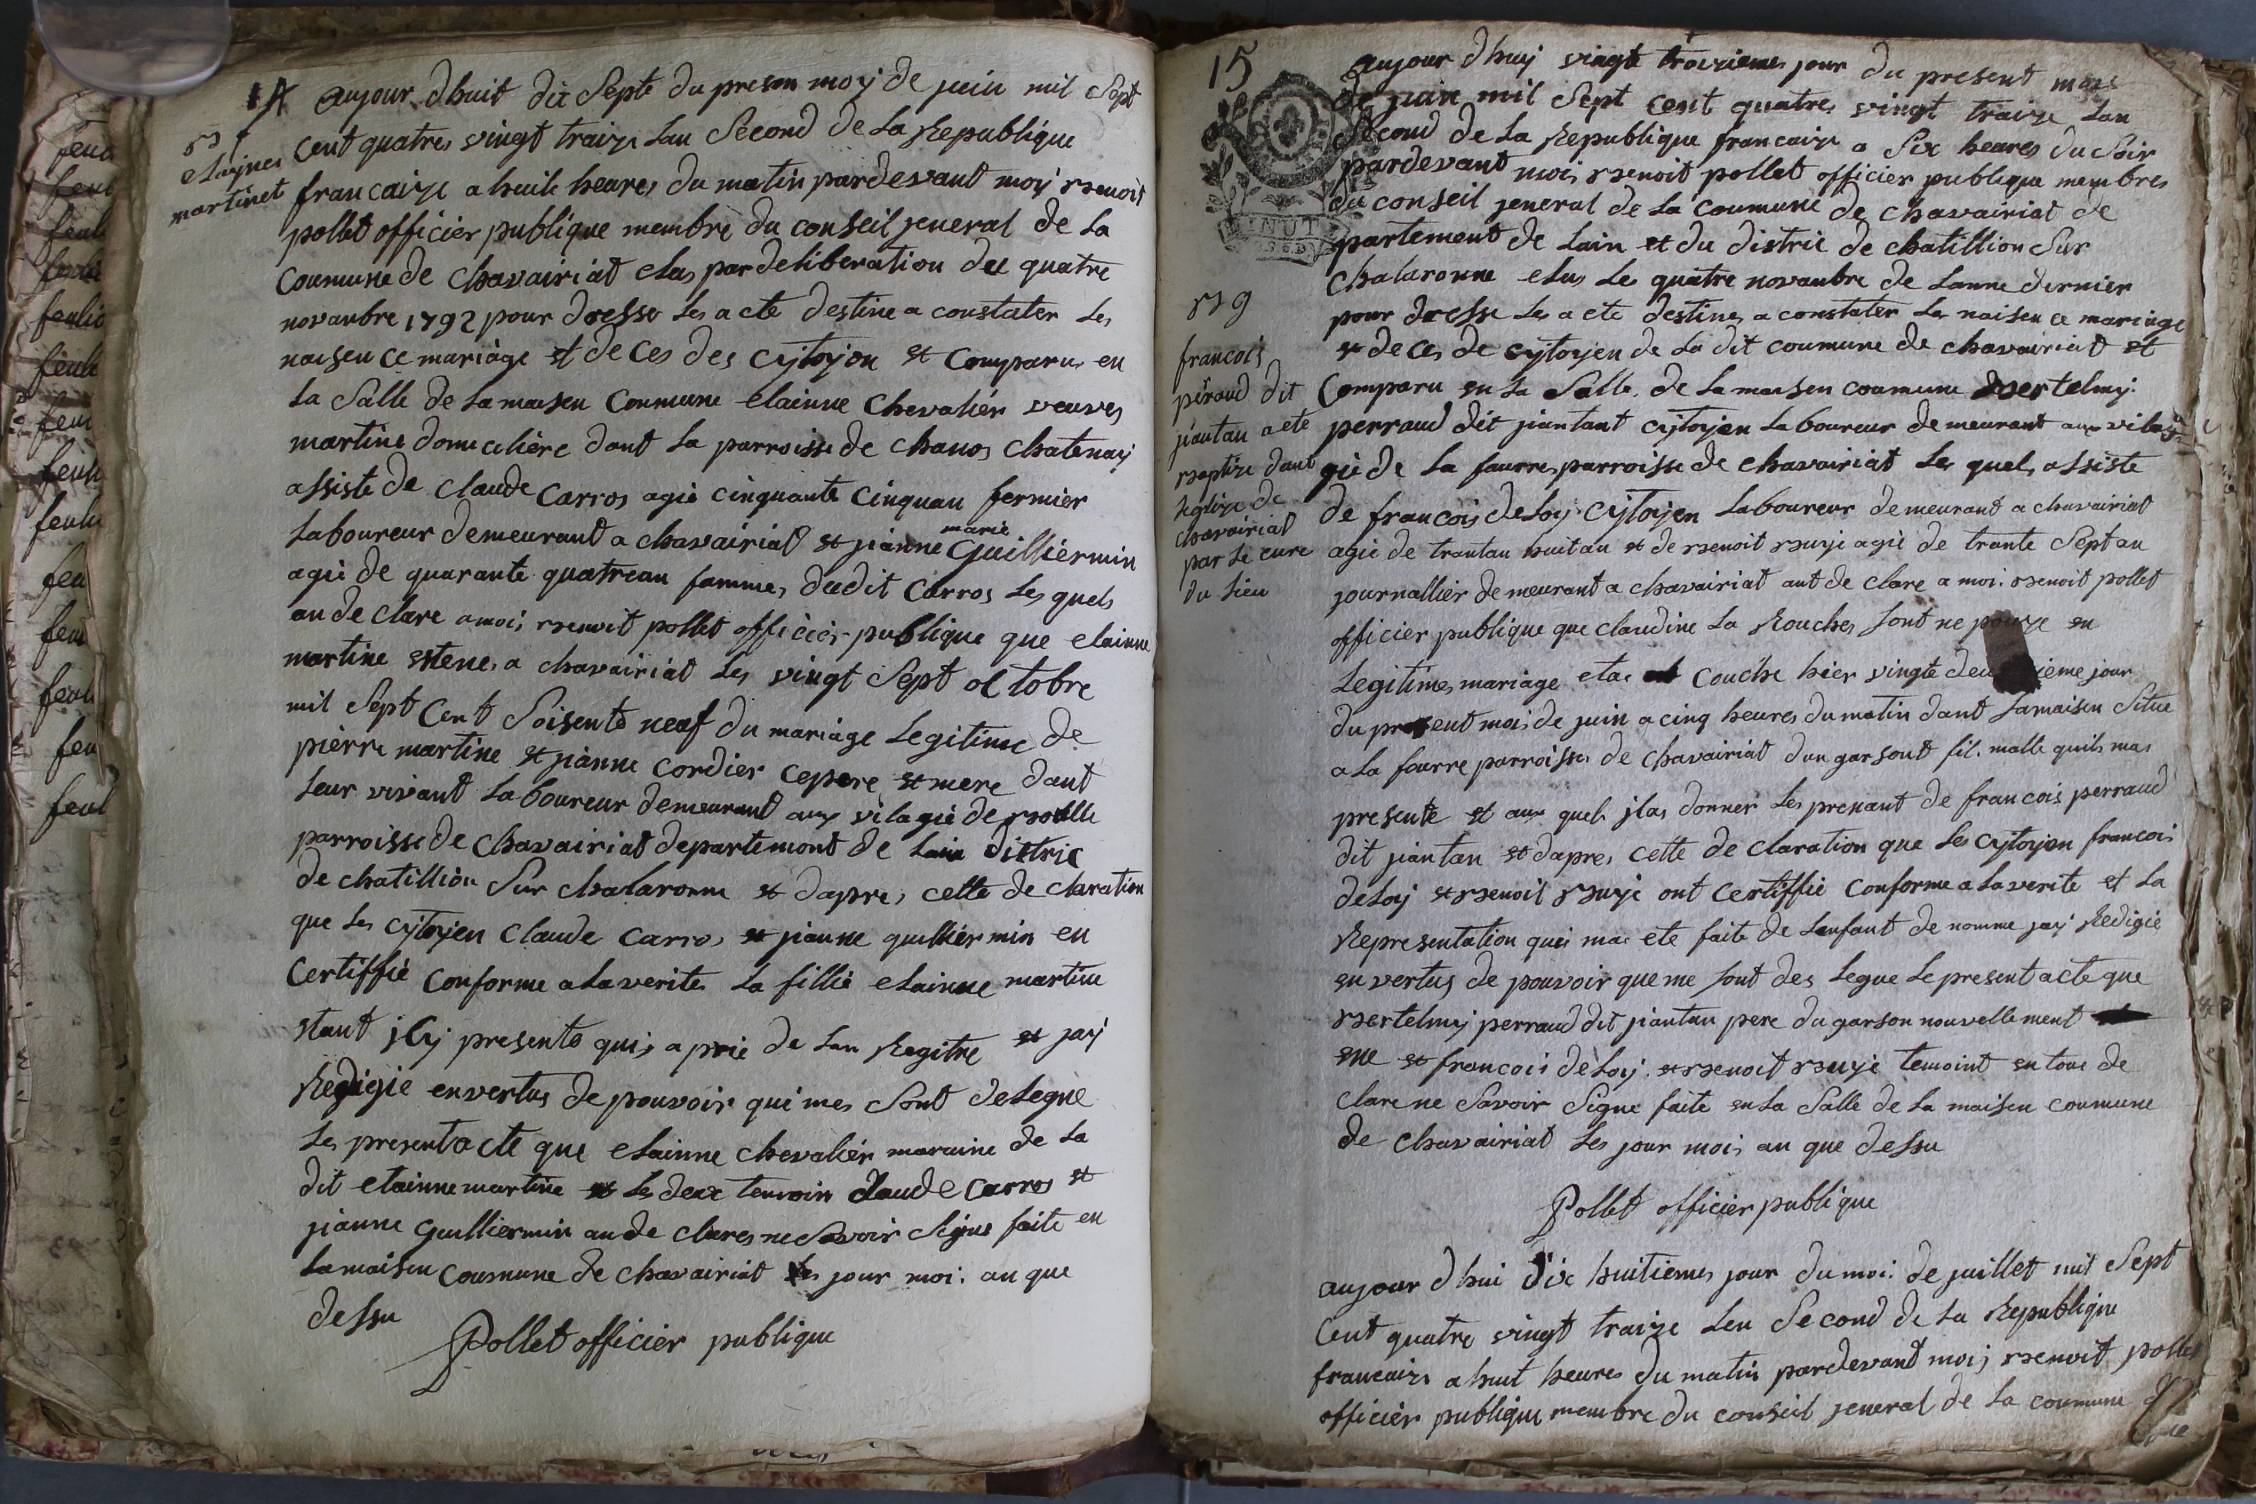 14
aujour dhuit dix Septe du preson moy de juin mil Sept
cent quatres vingt traize Lan Second de La Republique
francaize a huile heures du matin pardevant moy Benoit
pollet officier publique membre du conseil jeneral de La
coumune de chavairiat elus par deliberation du quatre
novanbre 1792 pour dresse Les acte destine a constater Les
naiseu ce mariage et de ces des cytoyon et Comparu en
La Salle de La maiseu Coumune elainne Chevaliér veuves
martine domicilière dant La parroisse de chanos chatenay
assiste de claude Carros agié cinquante cinquan fermier
Laboureur demeurant a chavairiat et jianne marie Guilliérmin
agié de quarante quatrean famme dudit Carros Les quels
an de clare a moi Benoit pollet officiér publique que elainne
martine estene a chavairiat Les vingt Sept octobre
mil Sept Cent Soisente neaf du mariage Legitime de
pièrre martine et jianne cordier ce pere et mere dant
Leur vivant Laboureur demeurant aux vilagié de Bolle
parroisse de chavairiat departemont de Lain distric
de chatilliòn Sur chalaronne et dapres cette de claration
que Les cytoyen Claude Carros et jianne guilliérmin en
Certiffié Conforme a La verite La fillié elainne martine
etant jcy presente qui a prié de Lan Regitre et jay
Redigié en vertus de pouvoir qui mes Sont delegue
Le present acte que elainne chevaliér maraine de La
dit elainne martine et Les deux temoin Claude Carros et
jianne Guilliermin an de clares ne Savoir Signe faite en
La maiseu Coumune de chavairiat Les jour moi an que
dessu
Pollet officiér publique
elaynes
martinet
15
aujour dhuy vingt troizieme jour du present mois
de juin mil Sept cent quatres vingt traize Lan
Second de La Republique francaize a Six heares du Soir
pardevant moi Benoit pollet officier publique membres
du conseil jeneral de La coumune de chavairiat de
partement de Lain et du distric de chatillion Sur
chalaronne elus Le quatre novanbre de Lanne dernier
pour dresse Les acte destines a constater La naiseu ce mariage
et de ces de cytoyen de La dit coumune de chavairiat et
Comparu en La Salle de La maiseu coumune Bertelmy
perraud dit jiantant cytoyen Laboureur de meurant aux vila
gié de La faurre parroisse de chavairiat Les quels assiste
de francois deLoy cytoyen Laboureur demeurant a chavairiat
agié de trantan huitan et de Benoit Buyé agié de trante Septan
journallier demeurant a chavairiat ant de clare a moi Benoit pollet
officier publique que claudine La Rouches Sont ne pouze en
Legitimes mariage etac couche hier vingte deuxieme jour
du present moi de juin a cinq heures du matin dant Lamaiseu Situe
a La faurre parroisse de chavairiat dun garsont fil malle quils mas
presente et aux quels jlas donner Les prenant de francois perraud
dit jiantan et dapres cette de claration que Les cytoyen francois
deLoy et Benoit Buyé ont certiffié Conforme a La verite et La
Representation qui mas ete faite de Lanfant de nomme jay Redigié
en vertus de pouvoir que me Sont des Legue Le present acte que
Bertelmy perraud dit jiantan pere du garson nouvellement
ene et francois deLoy et Benoit Buyé temoint en tous de
Clare ne Savoir Signe faite en La Salle de La maiseu coumune
de chavairiat Les jour moi an que dessu
Pollet officier publique
B 9
francois
péraud dit
jiantan a ete
Baptize dant
Leglize de
chavairiat
par Le cure
du Lieu
aujour dhui dix huitiemes jour du moi de juillet mil Sept
Cent quatre vingt traize Leu Second de La Republique
francaize a huit heures du matin pardevant moi Benoit pollet
officiér publique membre du conseil jeneral de La coumune
feul
feul
feul
feul
feul
feul
feul
feul
feul
feul
feul
feul
feul
feul